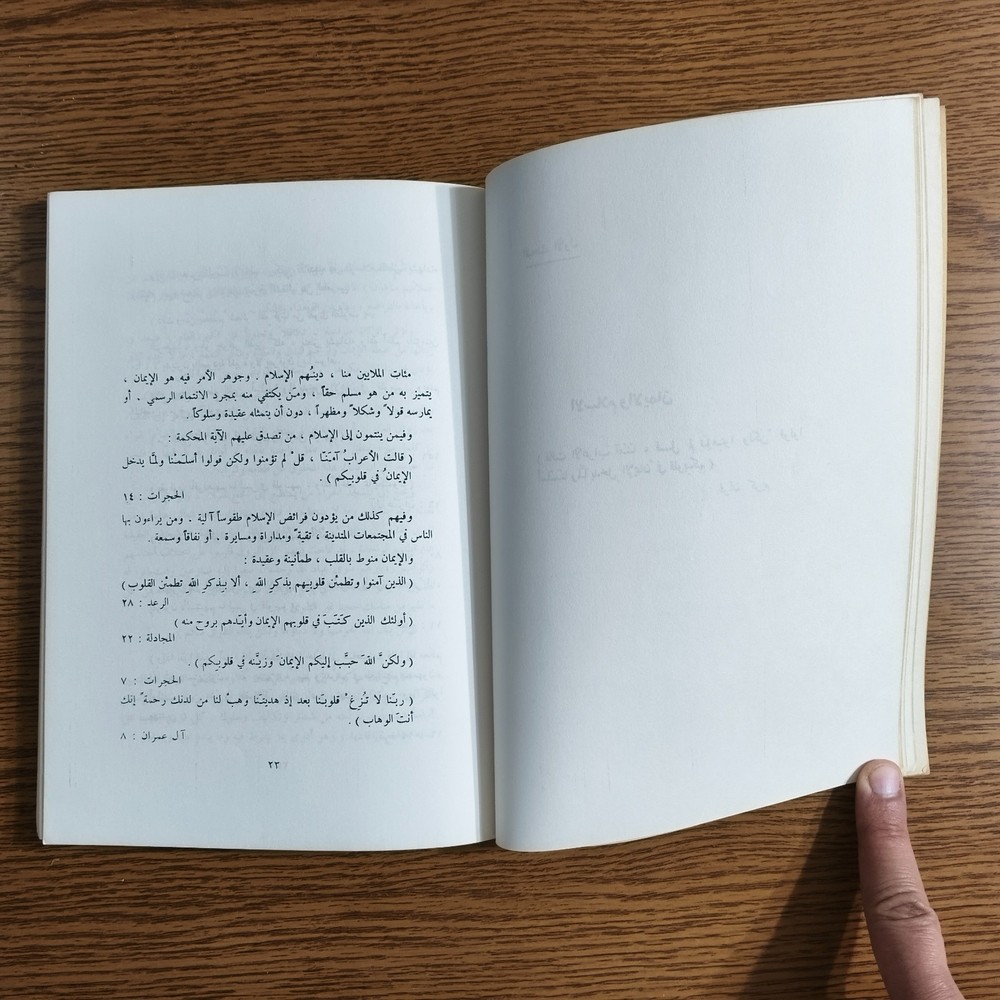 مئات الملايين منا ، دينُهم الإسلام . وجوهر الأمر فيه هو الإيمان ،
يتميز به من هو مسلم حقاً ، ومَن يكتفي منه بمجرد الانتماء الرسمي . أو
يمارسه قولاً وشكلاً ومظهراً ، دون أن يتمثله عقيدة وسلوكاً .
وفيمن ينتمون إلى الإسلام ، من تصدق عليهم الآية المحكمة :
( قالت الأعرابُ آمَنّا ، قلْ لم تؤمنوا ولكن قولوا أسلَمْنا ولمَّا يدخل
الإيمانُ في قلوبِكم ) .
الحجرات : ١٤
وفيهم كذلك من يؤدون فرائض الإسلام طقوساً آلية . ومن يراءون بها
الناس في المجتمعات المتدينة ، تقيةً ومداراة ومسايرة . أو نفاقاً وسمعة .
والإيمان منوط بالقلب ، طمأنينة وعقيدة :
( الذين آمنوا وتطمئن قلوبهم بذكر اللهِ ، ألا بِذكرِ اللهِ تطمئن القلوب )
الرعد : ٢٨
( أولئك الذين كتَبَ في قلوبهم الإيمان وأيَّدهم بروح منه )
المجادلة : ٢٢
( ولكنَّ اللهَ حبَّب إليكم الإيمانَ وزيَّنه في قلوبِكم ) .
الحجرات : ٧
( ربّنا لا تُزِغْ قلوبَنا بعد إذ هديتَنا وهبْ لنا من لدنك رحمةً إنك
أنتَ الوهاب ) .
آل عمران : ٨
٢٣